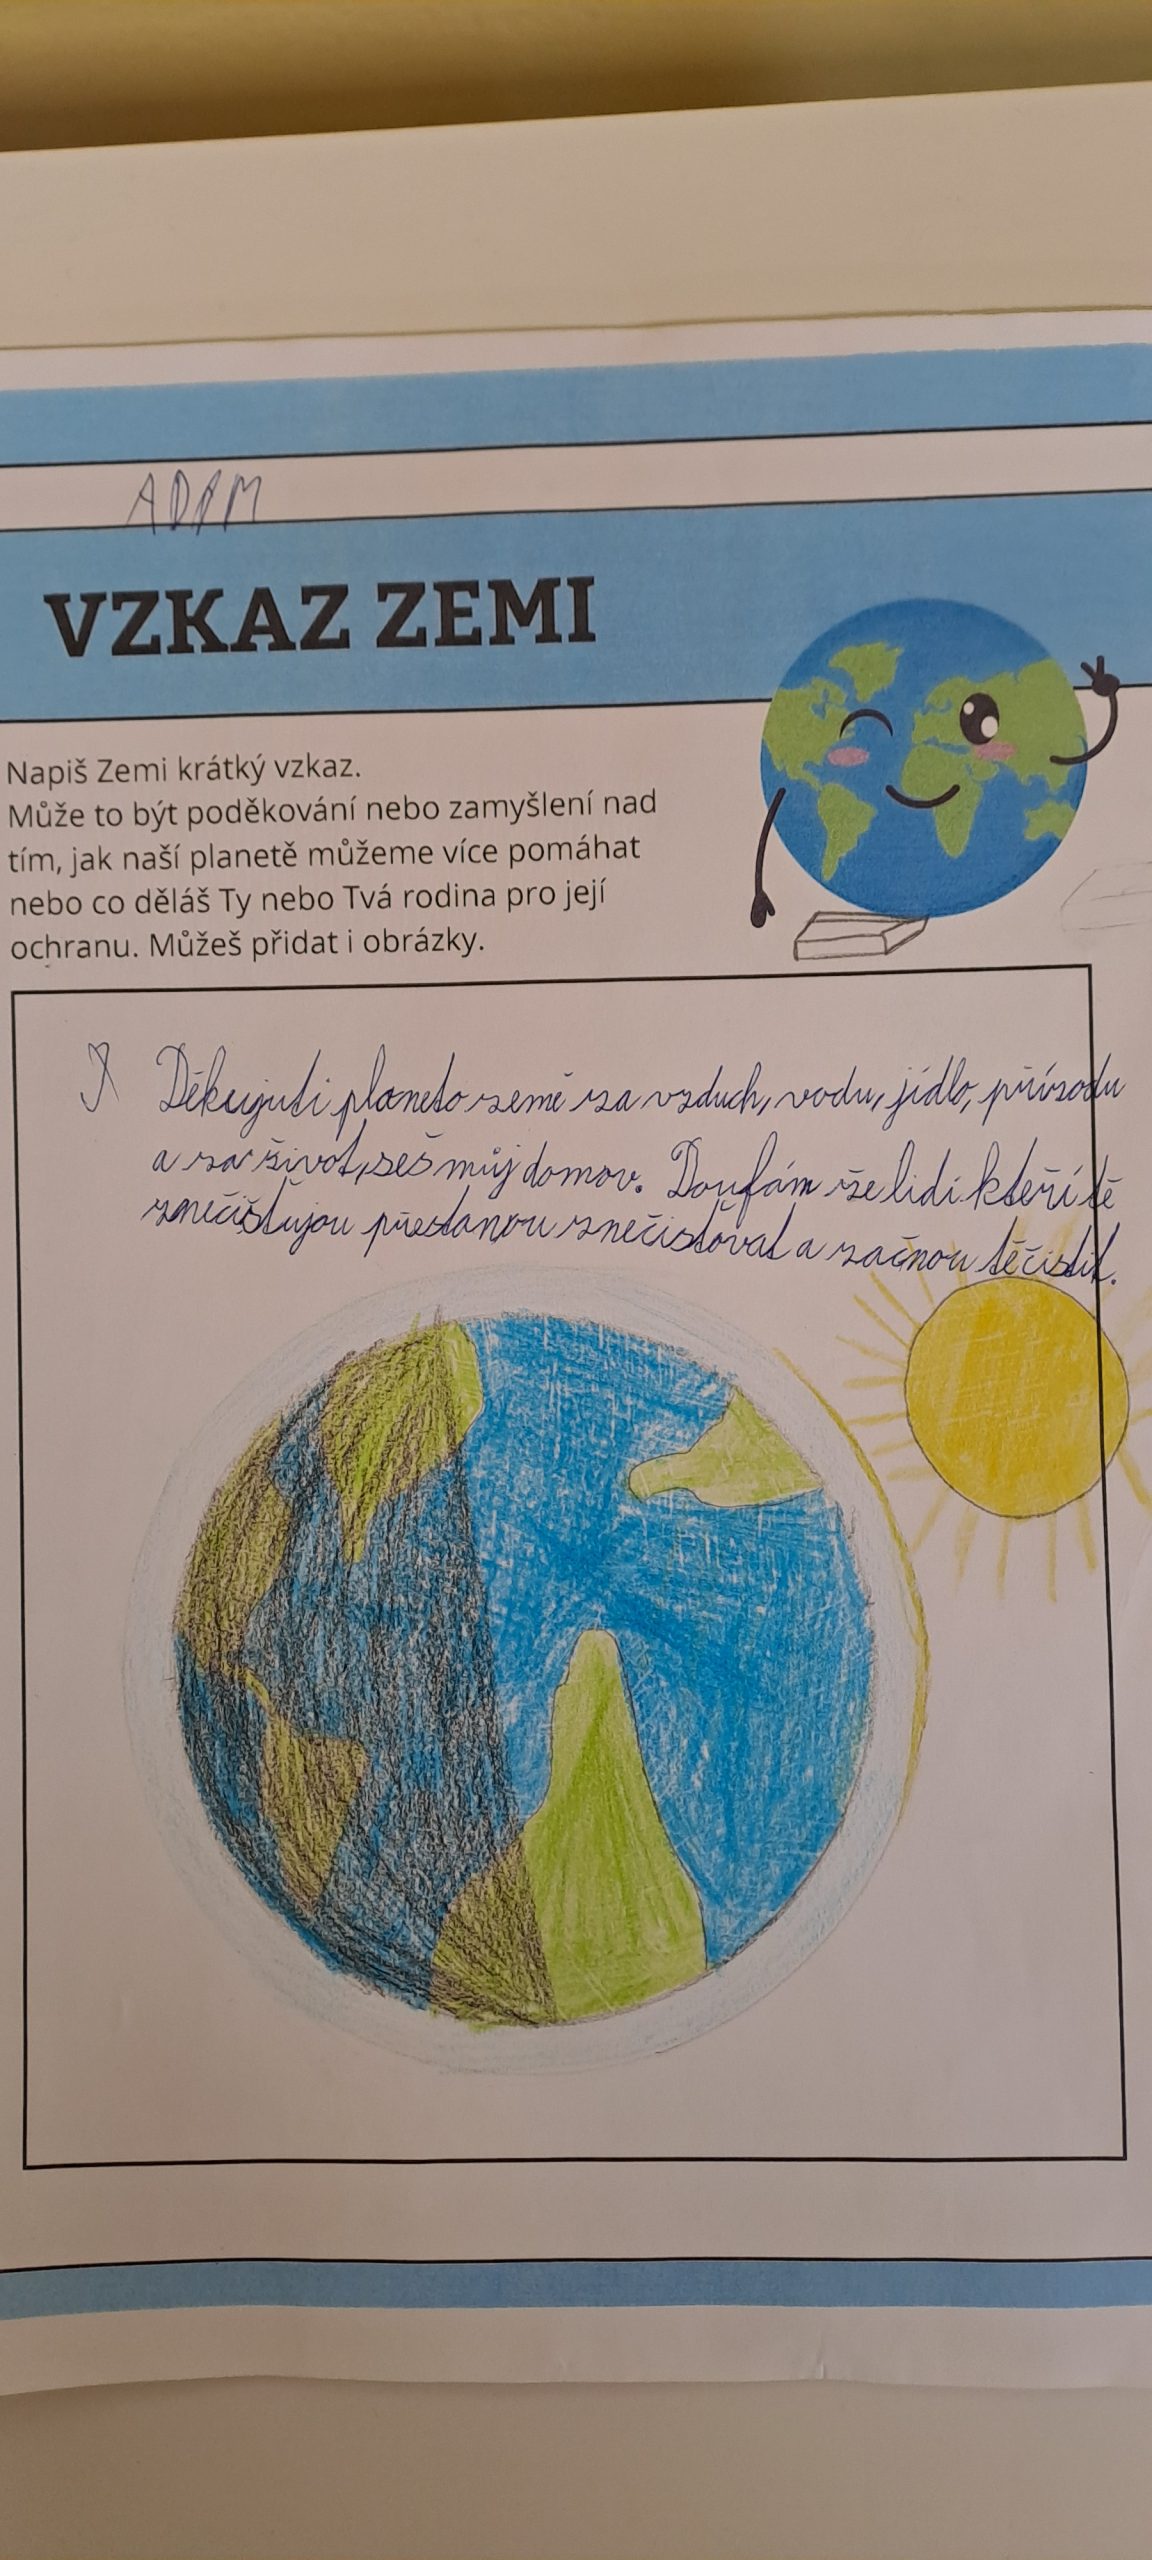 ADAM
VZKAZ ZEMI
Napiš Zemi krátký vzkaz.
Může to být poděkování nebo zamyšlení nad
tím, jak naší planetě můžeme více pomáhat
nebo co děláš Ty nebo Tvá rodina pro její
ochranu. Můžeš přidat i obrázky.
Děkujuti planeto země za vzduch, vodu, jídlo, přírodu
a za život, seš můj domov. Doufám že lidi kteří tě
znečišťujou přestanou znečisťovat a začnou tě čistit.